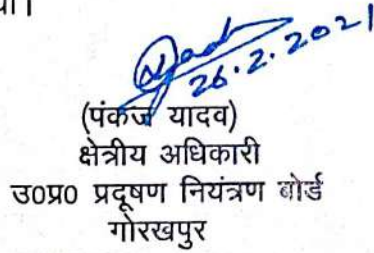 था।
26.2.2021
(पंकज यादव)
क्षेत्रीय अधिकारी
उ०प्र० प्रदूषण नियंत्रण बोर्ड
गोरखपुर